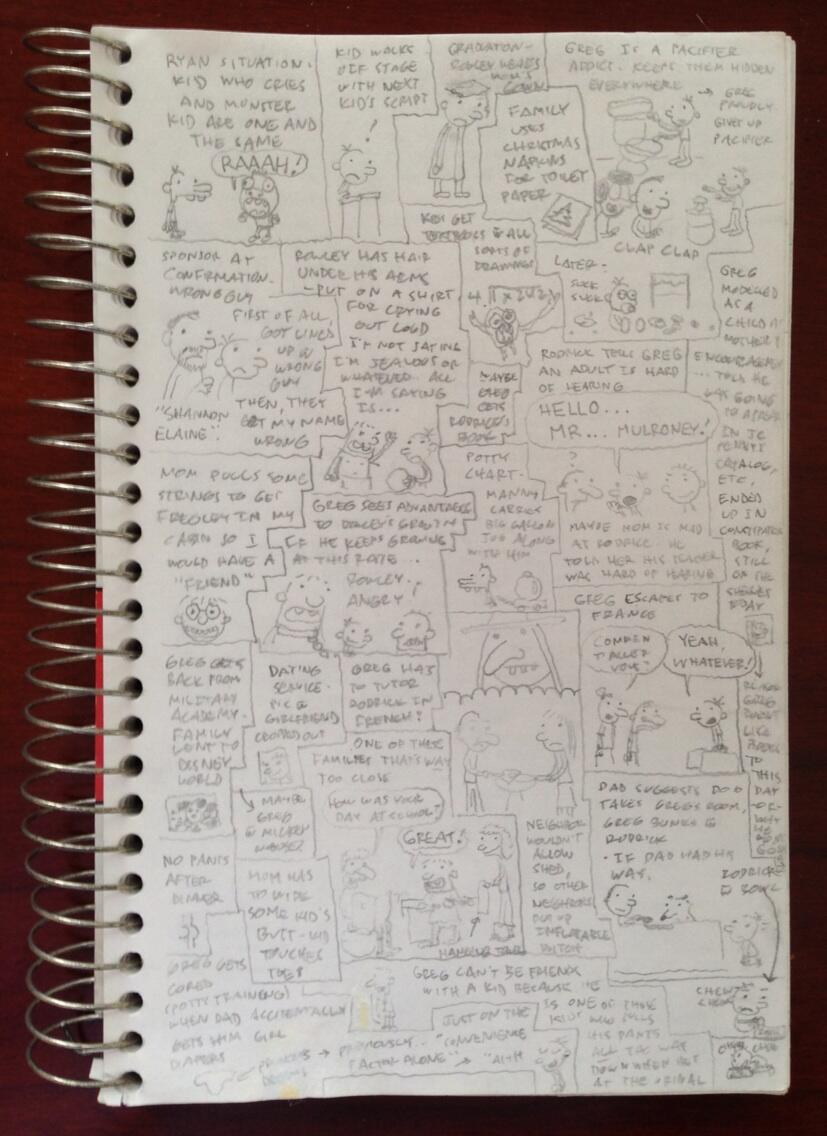 RYAN SITUATION.
KID WHO CRIES
AND MONSTER
KID ARE ONE AND
THE SAME
RAAAH!
KID WALKS
OFF STAGE
WITH NEXT
KID'S SCRIPT
!
GRADUATION-
ROWLEY WEARS
MOM'S
GOWN
FAMILY
USES
CHRISTMAS
NAPKINS
FOR TOILET
PAPER
GREG IS A PACIFIER
ADDICT. KEEPS THEM HIDDEN
EVERYWHERE
→ GREG
PROUDLY
GIVES UP
PACIFIER
CLAP CLAP
LATER-
SUCK
SUCK
KIDS GET
TEXTBOOKS & ALL
SORTS OF
DRAWINGS
MAYBE
GREG
GETS
RODRICK'S
BOOK
SPONSOR AT
CONFIRMATION.
WRONG GUY
FIRST OF ALL,
GOT LINED
UP W
WRONG
GUY
"SHANNON
ELAINE".
THEN, THEY
GET MY NAME
WRONG
ROWLEY HAS HAIR
UNDER HIS ARMS
-PUT ON A SHIRT
FOR CRYING
OUT LOUD
I'M NOT SAYING
I'M JEALOUS OR
WHATEVER. ALL
I'M SAYING
IS...
GREG
MODELED
AS A
CHILD
MOTHER'S
ENCOURAGEMENT
... TOLD HE
WAS GOING
TO APPEAR
IN JC
PENNY'S
CATALOG,
ETC.
ENDED
UP IN
CONSTIPATION
BOOK,
STILL
ON THE
SHELVES
TODAY
RODRICK TELLS GREG
AN ADULT IS HARD
OF HEARING
HELLO...
MR... MULRONEY!
?
MAYBE MOM IS MAD
AT RODRICK. HE
TOLD HER HIS TEACHER
WAS HARD OF HEARING
MOM PULLS SOME
STRINGS TO GET
FREGLEY IN MY
CABIN SO I
WOULD HAVE A
"FRIEND"
GREG SEES ADVANTAGES
TO ROWLEY'S GROWTH
IF HE KEEPS GROWING
AT THIS RATE...
ROWLEY...
ANGRY!
POTTY
CHART-
MANNY
CARRIES
BIG GALLON
JUG ALONG
WITH HIM
GREG ESCAPES TO
FRANCE
YEAH,
WHATEVER!
GREG GETS
BACK FROM
MILITARY
ACADEMY-
FAMILY
WENT TO
DISNEY
WORLD
DATING
SERVICE-
PIC @
GIRLFRIEND
CROPPED OUT
→ MAYBE
GREG
@ MICKEY
MOUSE?
GREG HAS
TO TUTOR
RODRICK IN
FRENCH?
ONE OF THESE
FAMILIES THAT'S WAY
TOO CLOSE
HOW WAS YOUR
DAY AT SCHOOL?
GREAT!
NEIGHBOR
WOULDN'T
ALLOW
SHED,
SO OTHER
NEIGHBORS
PUT UP
INFLATABLE
DAD SUGGESTS DAD
TAKES GREG'S ROOM,
GREG BUNKS @
RODRICK
- IF DAD HAD HIS
WAY.
RODRICK
@ BOWL
CHEW
CHEW
NO PANTS
AFTER
DINNER
MOM HAS
TO WIPE
SOME KID'S
BUTT - KID
TOUCHES
TOES
GREG GETS
CURED
(POTTY TRAINING)
WHEN DAD ACCIDENTALLY
GETS HIM GIRL
DIAPERS
GREG CAN'T BE FRIENDS
WITH A KID BECAUSE HE
IS ONE OF THOSE
KIDS WHO PULLS
HIS PANTS
ALL THE WAY
DOWN WHEN HE'S
AT THE URINAL
JUST ON THE
"CONVENIENCE
FACTOR ALONE"